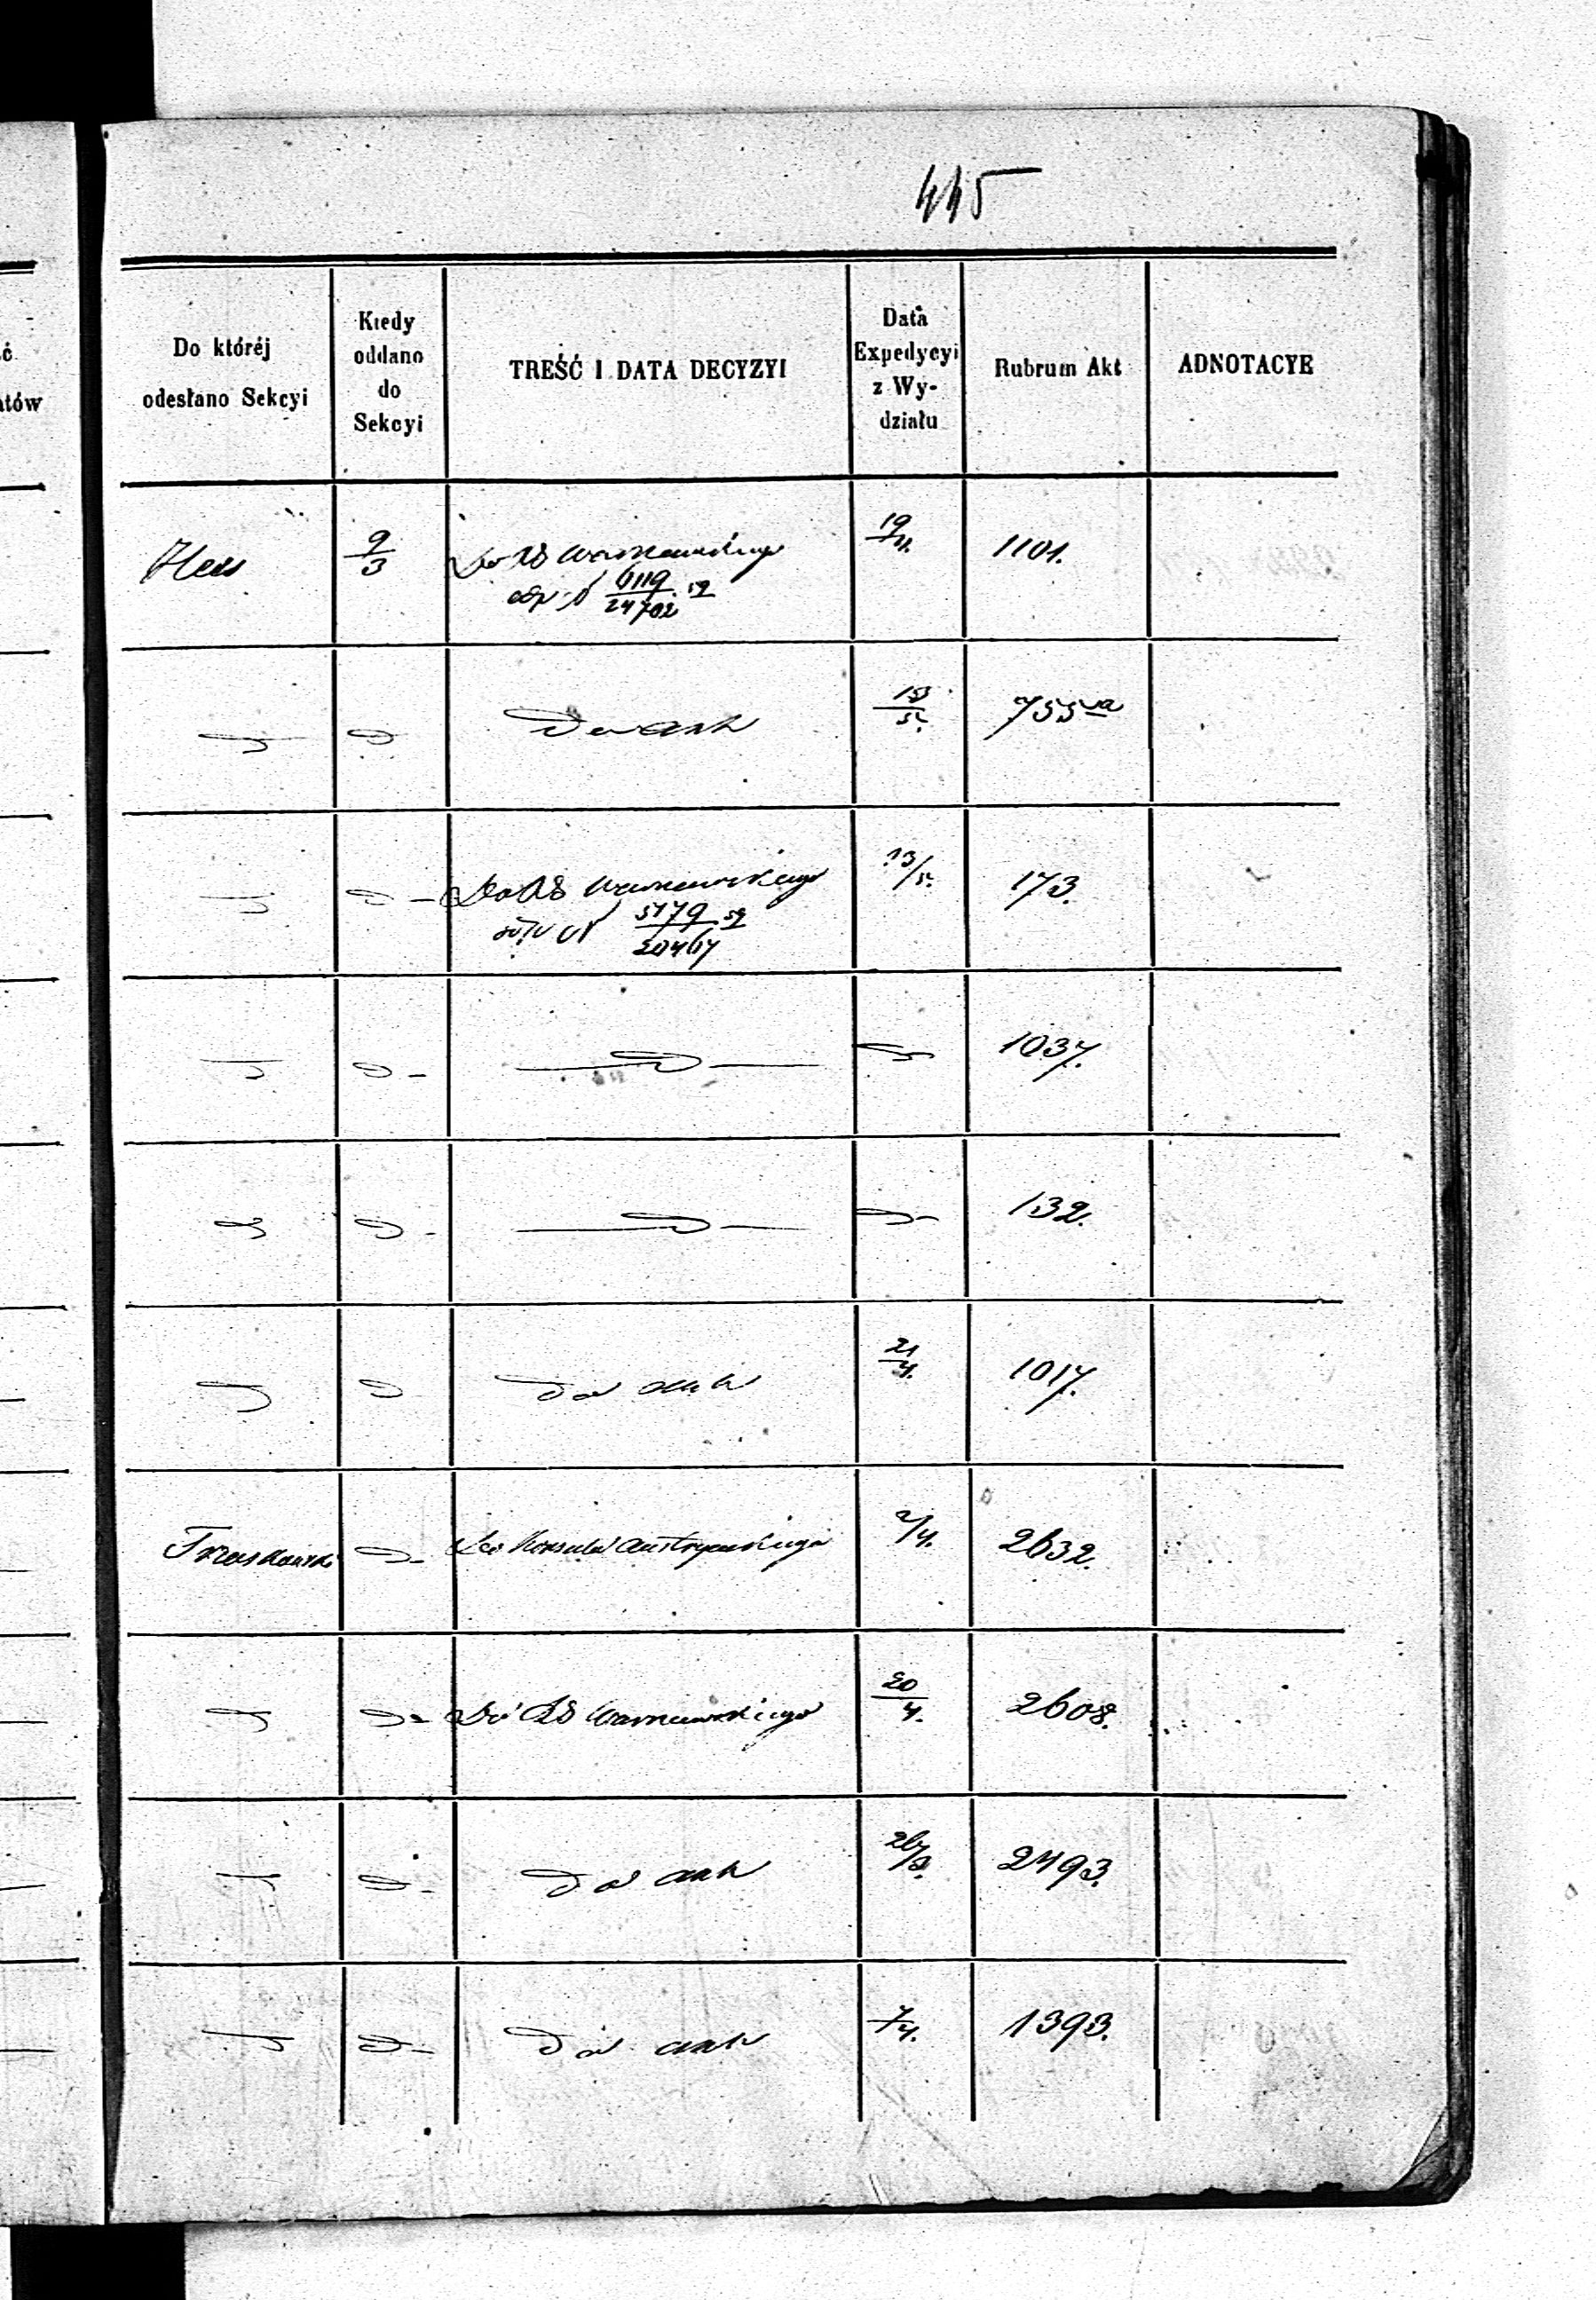 445
Do któréj odesłano Sekcyi
Kiedy oddano do Sekcyi
TREŚĆ I DATA DECYZYI
Data Expedycyi z Wy-działu
Rubrum Akt
ADNOTACYE
ć
tów
Hess 9/3 Do RG Warszawskiego 19/4. 1101.
6119/24702 59
Do akt 13/5. 755 va
Do RG Warszawskiego 13/5. 173.
5179/20464 59
1037.
132.
Do akt 21/4. 1017.
Trzaskowski Do Konsula Austryackiego 2/4. 2632.
Do RG Warszawskiego 20/4. 2608.
Do akt 2493.
Do akt 7/4. 1393.